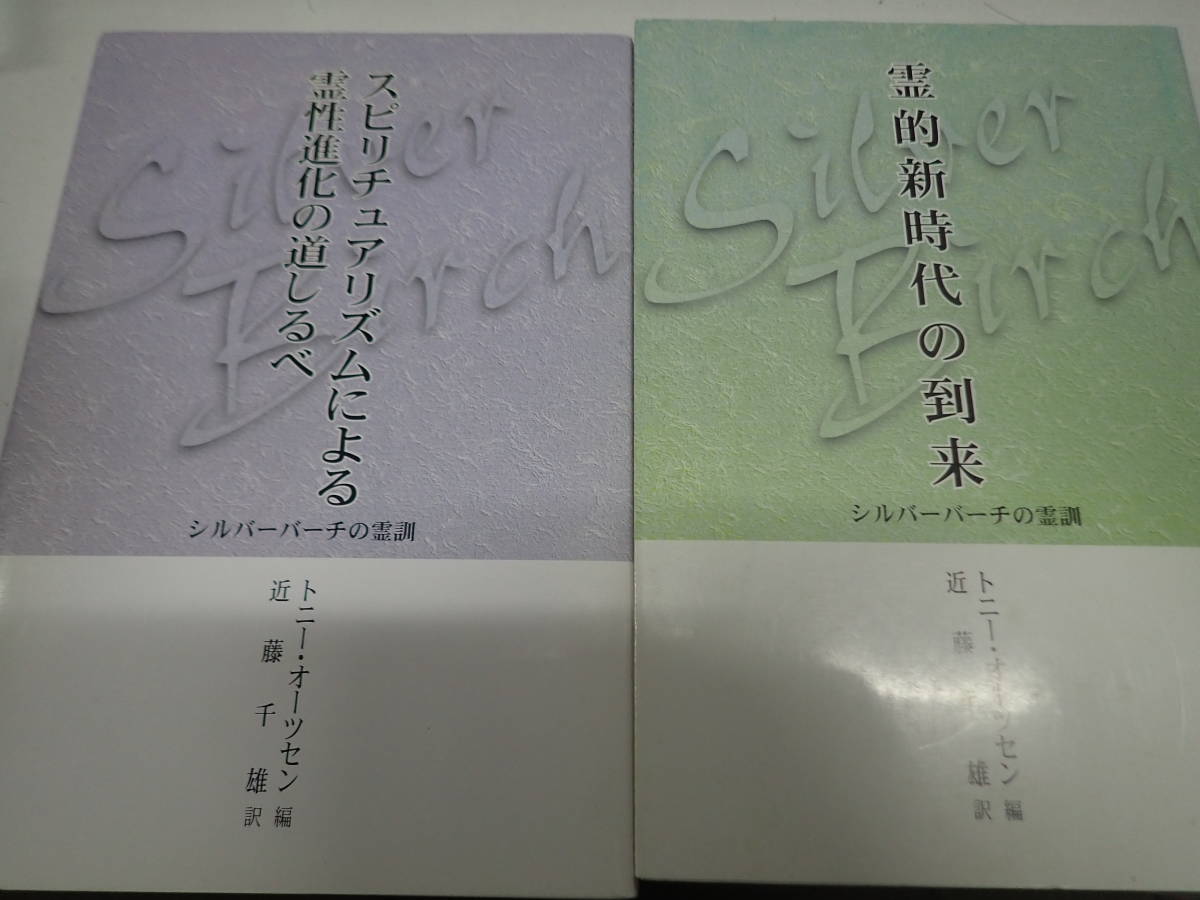 Silver
Birch
スピリチュアリズムによる
霊性進化の道しるべ
シルバーバーチの霊訓
トニー・オーツセン 編
近藤千雄 訳
Silver
Birch
霊的新時代の到来
シルバーバーチの霊訓
トニー・オーツセン 編
近藤千雄 訳